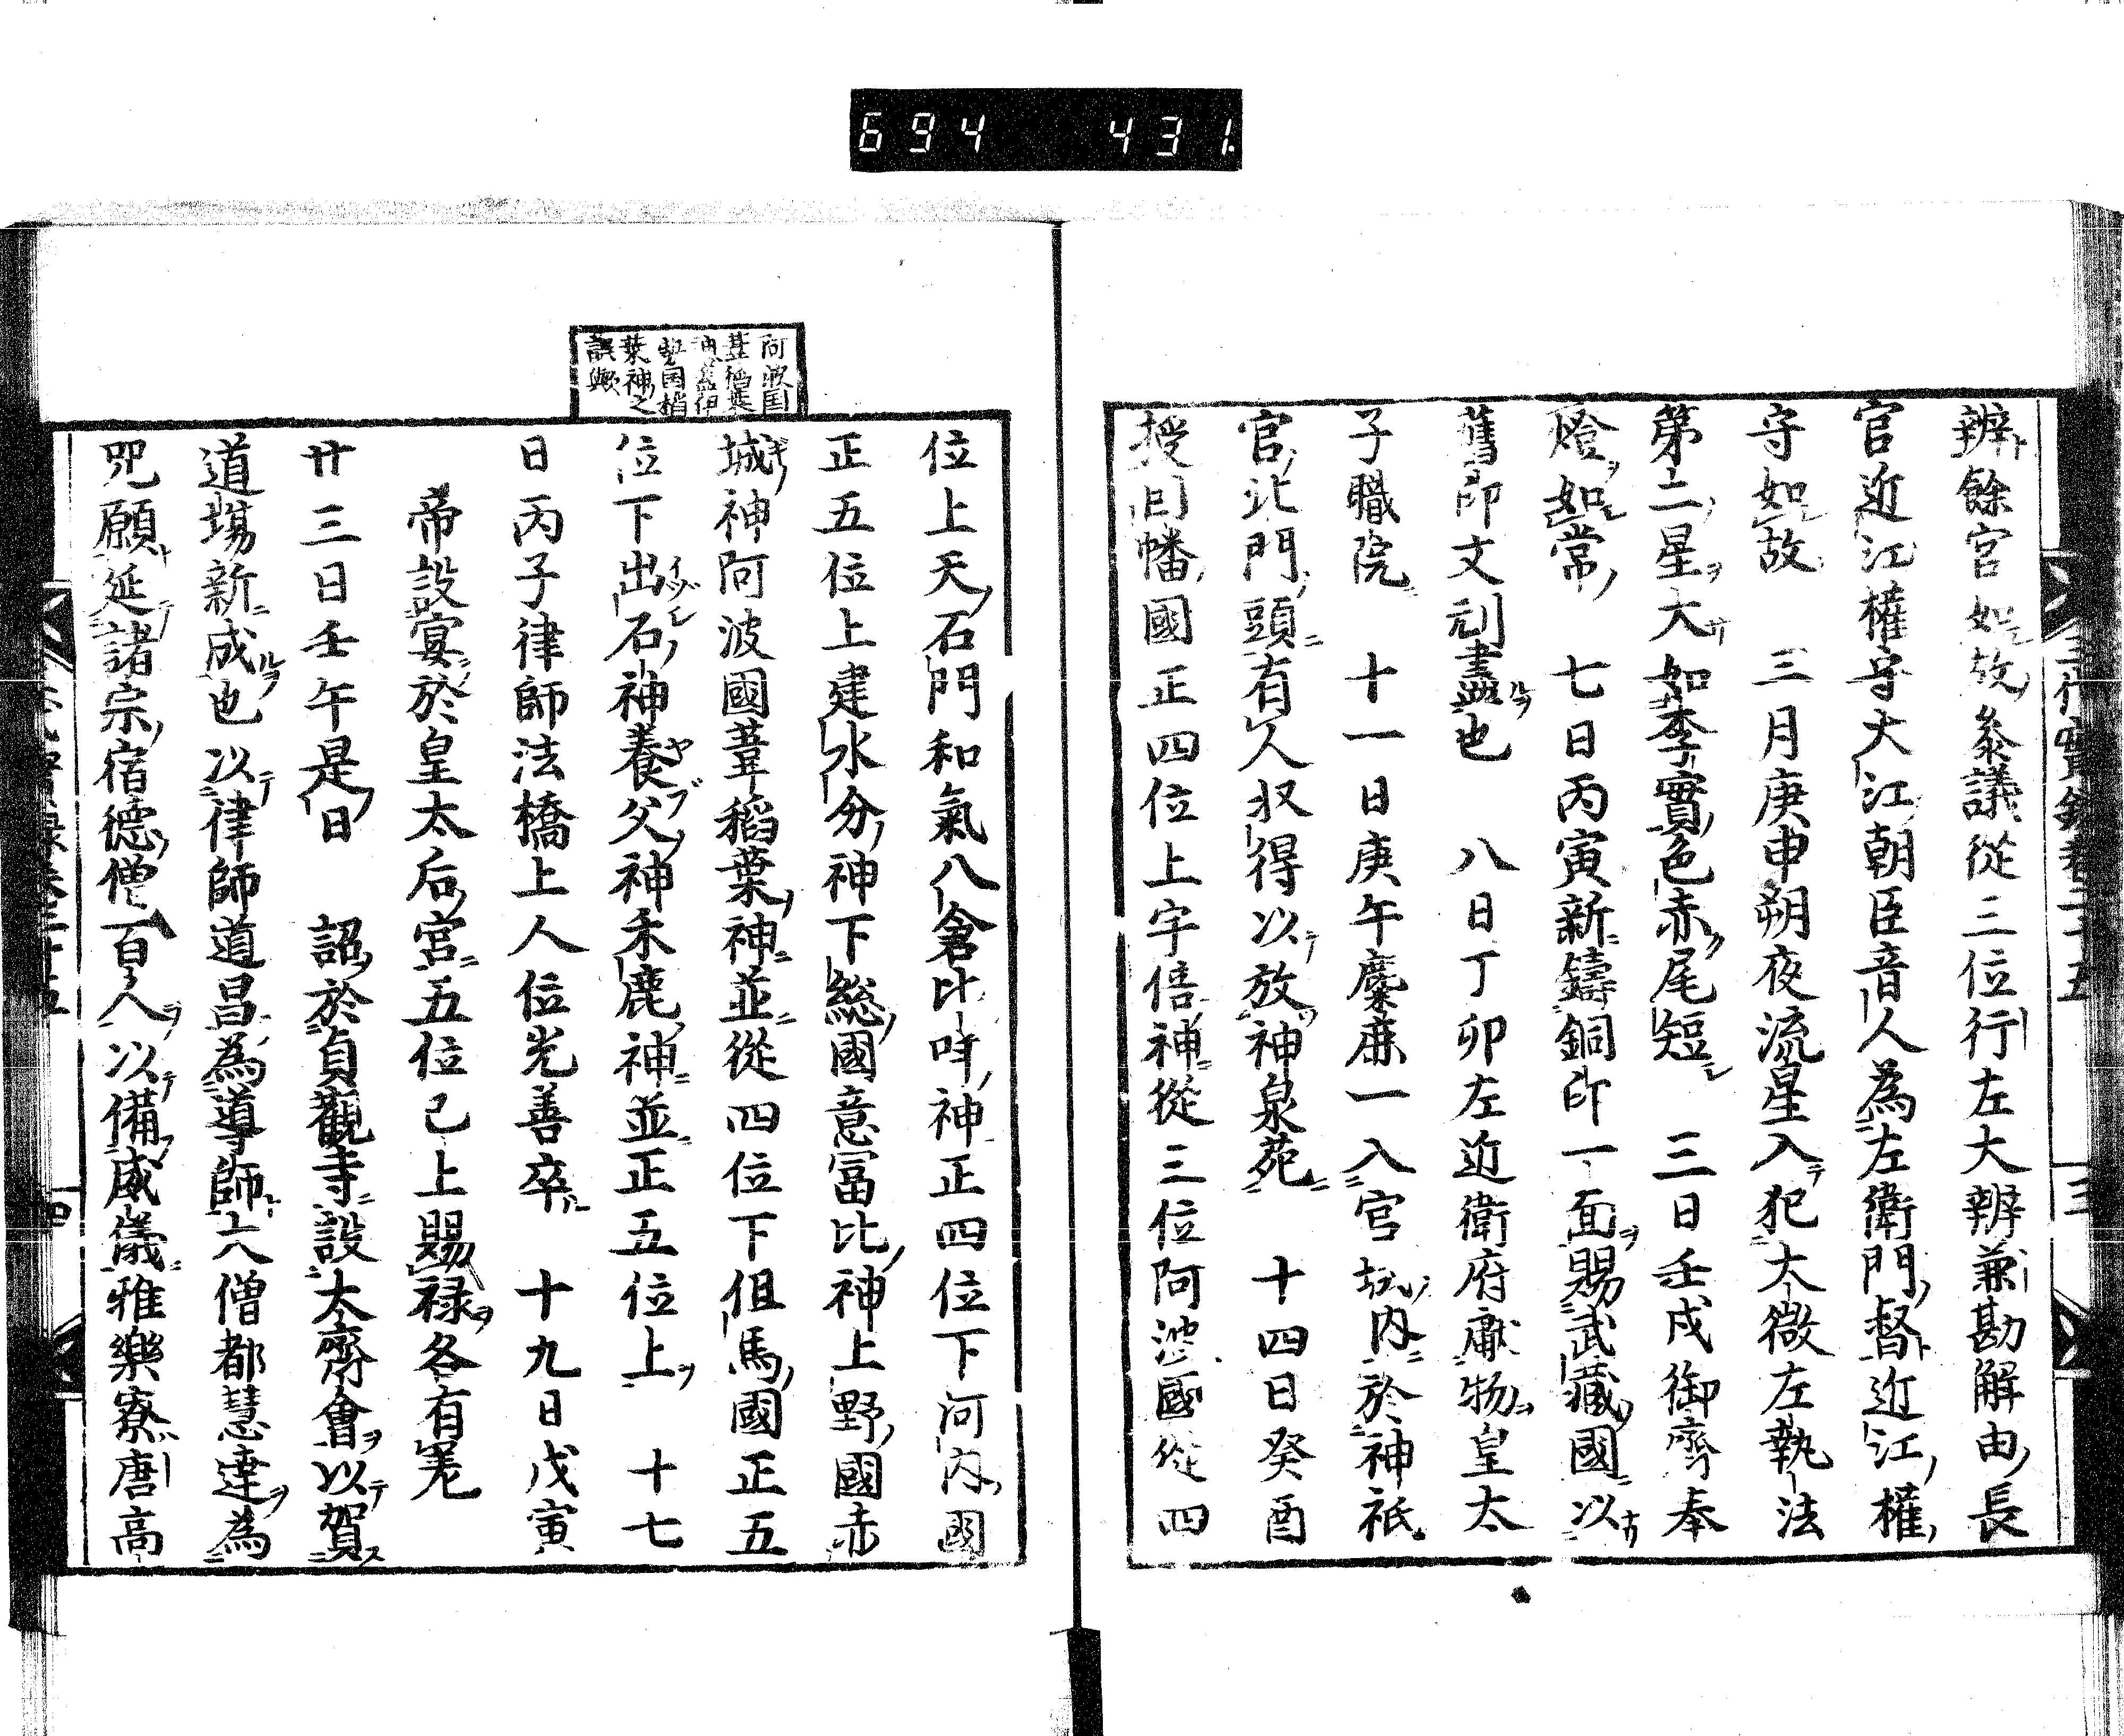 694 431.
辨餘官如故叅議從三位行左大辨兼勘解由長
官近江權守大江朝臣音人為左衛門督近江權
守如故 三月庚申朔夜流星入犯太微左執法
第二星大如李實色赤尾短 三日壬戌御齊奉
燈如常 七日丙寅新鑄銅印一面賜武藏國以
舊印文刓盡也 八日丁卯左近衛府獻物皇太
子職院 十一日庚午麋鹿一入官城内於神祇
官北門頭有人収得以放神泉苑 十四日癸酉
授因幡國正四位上宇倍神從三位阿波國從四
位上天石門和氣八倉比咩神正四位下河内國
正五位上建水分神下総國意冨比神上野國赤
城神阿波國葦稻葉神並從四位下伹馬國正五
位下出石神養父神禾鹿神並正五位上 十七
日丙子律師法橋上人位光善卒 十九日戊寅
帝設宴於皇太后宮五位已上賜禄各有差
廿三日壬午是日 詔於貞觀寺設太齊會以賀
道塲新成也以律師道昌為導師大僧都慧達為
咒願延諸宗宿德僧百人以備威儀雅樂寮唐高